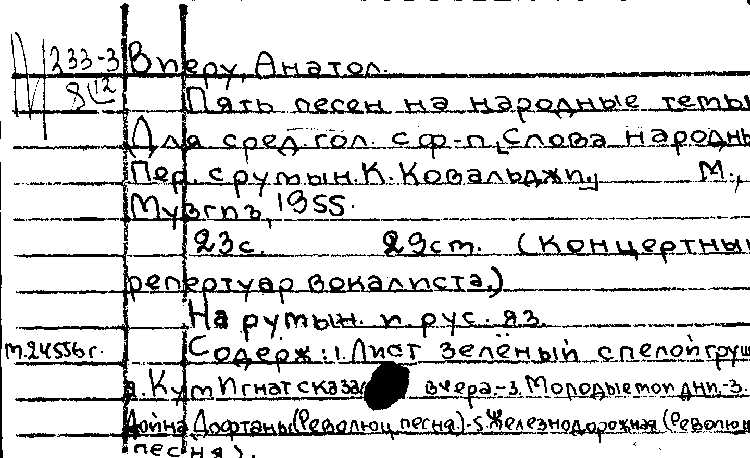 233-3 Вперу, Анатол.
8/12 Пять песен на народные темы
Для сред. гол. с ф-п. Слова народны
Пер. с румын. К. Ковальджи, М.,
Музгиз, 1955.
23с. 29см. (Концертны
репертуар вокалиста.)
На румын. и рус. яз.
м.24556г. Содерж: 1. Лист зелёный спелой груш
Кум Игнат сказа вчера-3. Молодые мои дни.-3.
Дойна Дофтаны (Революц песня)-5. Железнодорожная (Револю
песня).